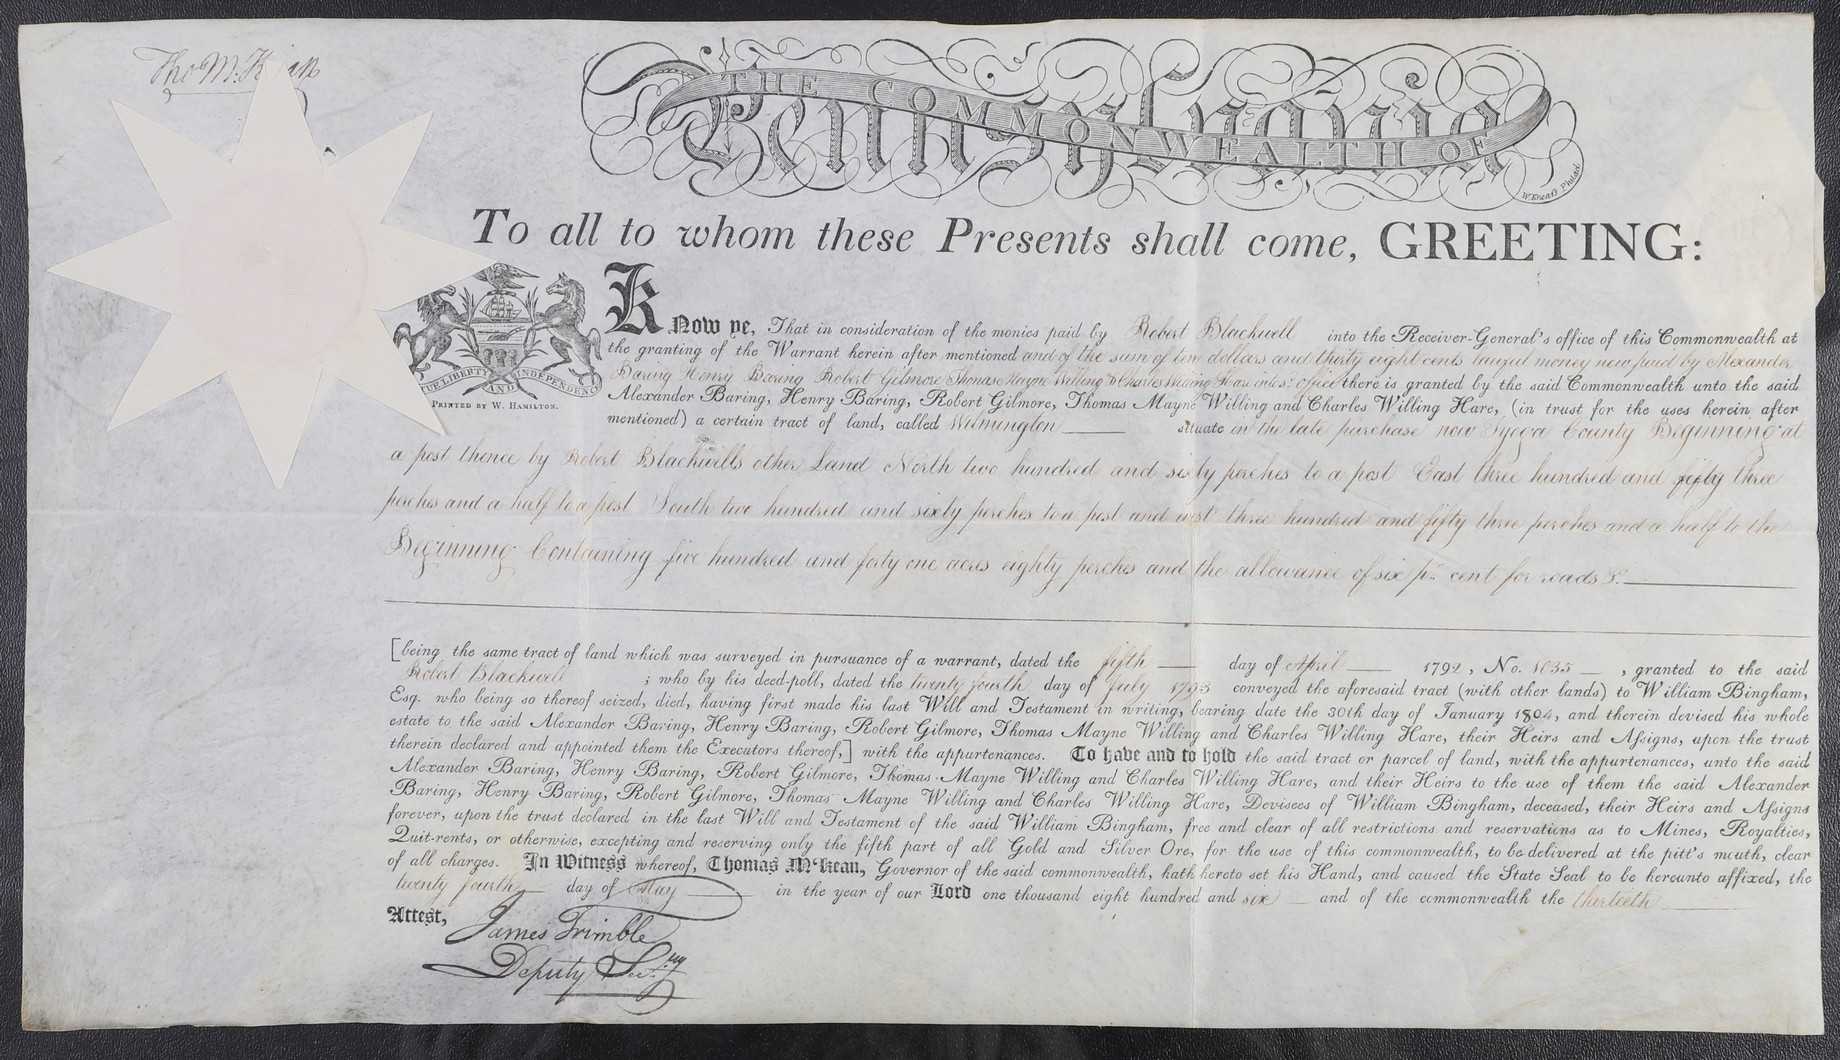 Tho M:Kean
THE COMMONWEALTH OF
Pennsylvania
W. Kneass Philad.
To all to whom these Presents shall come, GREETING:
TUE LIBERTY AND INDEPENDENCE
PRINTED BY W. HAMILTON.
KNow ye, That in consideration of the monies paid by Robert Blackwell into the Receiver-General's office of this Commonwealth at
the granting of the Warrant herein after mentioned and of the sum of ten dollars and thirty eight cents lawful money now paid by Alexander
Baring Henry Baring Robert Gilmore Thomas Mayne Willing & Charles Willing Hare into sd. office there is granted by the said Commonwealth unto the said
Alexander Baring, Henry Baring, Robert Gilmore, Thomas Mayne Willing and Charles Willing Hare, (in trust for the uses herein after
mentioned) a certain tract of land, called Wilmington situate in the late purchase now Tyoga County Beginning at
a post thence by Robert Blackwells other Land North two hundred and sixty perches to a post East three hundred and fifty three
perches and a half to a post South two hundred and sixty perches to a post and west three hundred and fifty three perches and a half to the
Beginning Containing five hundred and forty one acres eighty perches and the allowance of six pr. cent for roads &c.
[being the same tract of land which was surveyed in pursuance of a warrant, dated the fifth day of April 1792, No. 1035, granted to the said
Robert Blackwell ; who by his deed-poll, dated the twenty fourth day of July 1793 conveyed the aforesaid tract (with other lands) to William Bingham,
Esq. who being so thereof seized, died, having first made his last Will and Testament in writing, bearing date the 30th day of January 1804, and therein devised his whole
estate to the said Alexander Baring, Henry Baring, Robert Gilmore, Thomas Mayne Willing and Charles Willing Hare, their Heirs and Assigns, upon the trust
therein declared and appointed them the Executors thereof,] with the appurtenances. To have and to hold the said tract or parcel of land, with the appurtenances, unto the said
Alexander Baring, Henry Baring, Robert Gilmore, Thomas Mayne Willing and Charles Willing Hare, and their Heirs to the use of them the said Alexander
Baring, Henry Baring, Robert Gilmore, Thomas Mayne Willing and Charles Willing Hare, Devisees of William Bingham, deceased, their Heirs and Assigns
forever, upon the trust declared in the last Will and Testament of the said William Bingham, free and clear of all restrictions and reservations as to Mines, Royalties,
Quit-rents, or otherwise, excepting and reserving only the fifth part of all Gold and Silver Ore, for the use of this commonwealth, to be delivered at the pitt's mouth, clear
of all charges. In Witness whereof, Thomas M'Kean, Governor of the said commonwealth, hath hereto set his Hand, and caused the State Seal to be hereunto affixed, the
twenty fourth day of May in the year of our Lord one thousand eight hundred and six and of the commonwealth the thirtieth
Attest,
James Trimble
Deputy Secy.